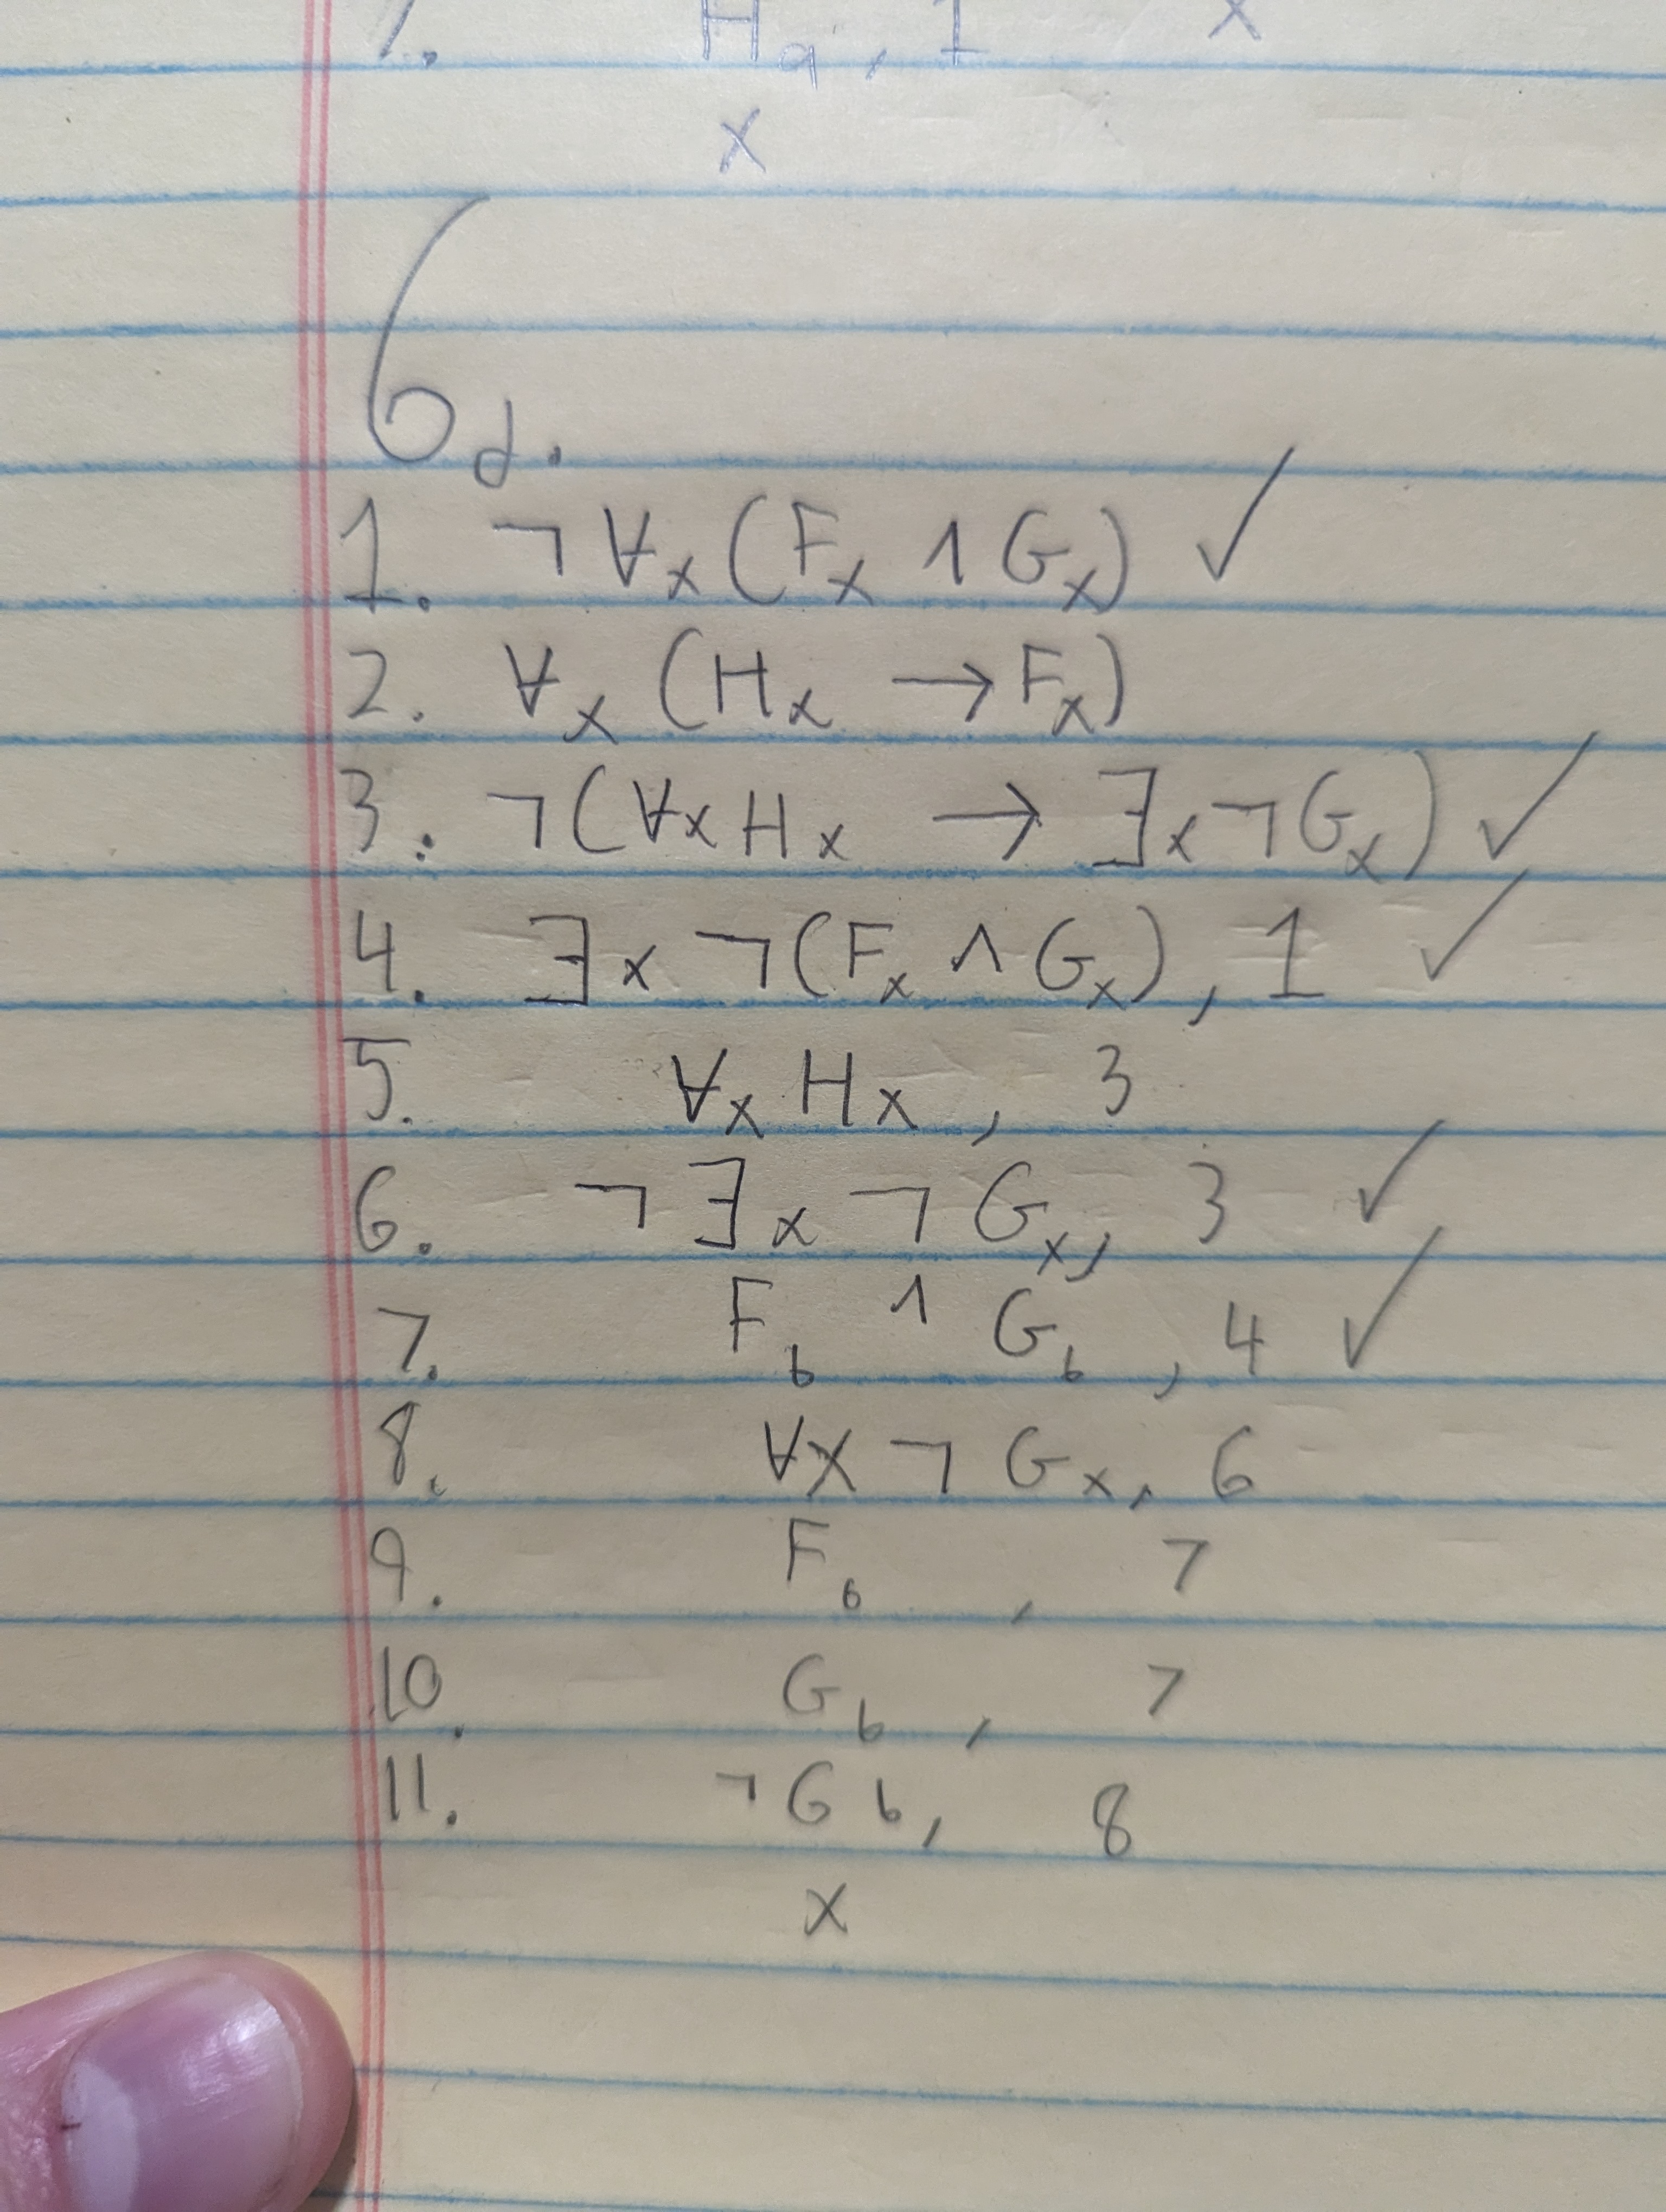 7. Ha, 1 x
x
6d.
1. ¬∀x(Fx ∧ Gx) ✓
2. ∀x(Hx → Fx)
3. ¬(∀xHx → ∃x¬Gx) ✓
4. ∃x¬(Fx ∧ Gx), 1 ✓
5. ∀xHx, 3
6. ¬∃x¬Gx, 3 ✓
7. Fb ∧ Gb, 4 ✓
8. ∀x¬Gx, 6
9. Fb, 7
10. Gb, 7
11. ¬Gb, 8
x